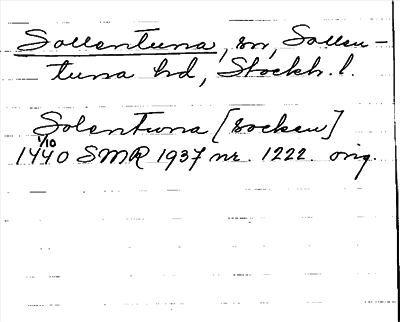 Sollentuna, sn, Sollen-
tuna hd, Stockh. l.
Solentwna [socken]
1/10
1440 SMR 1937 nr. 1222. orig.